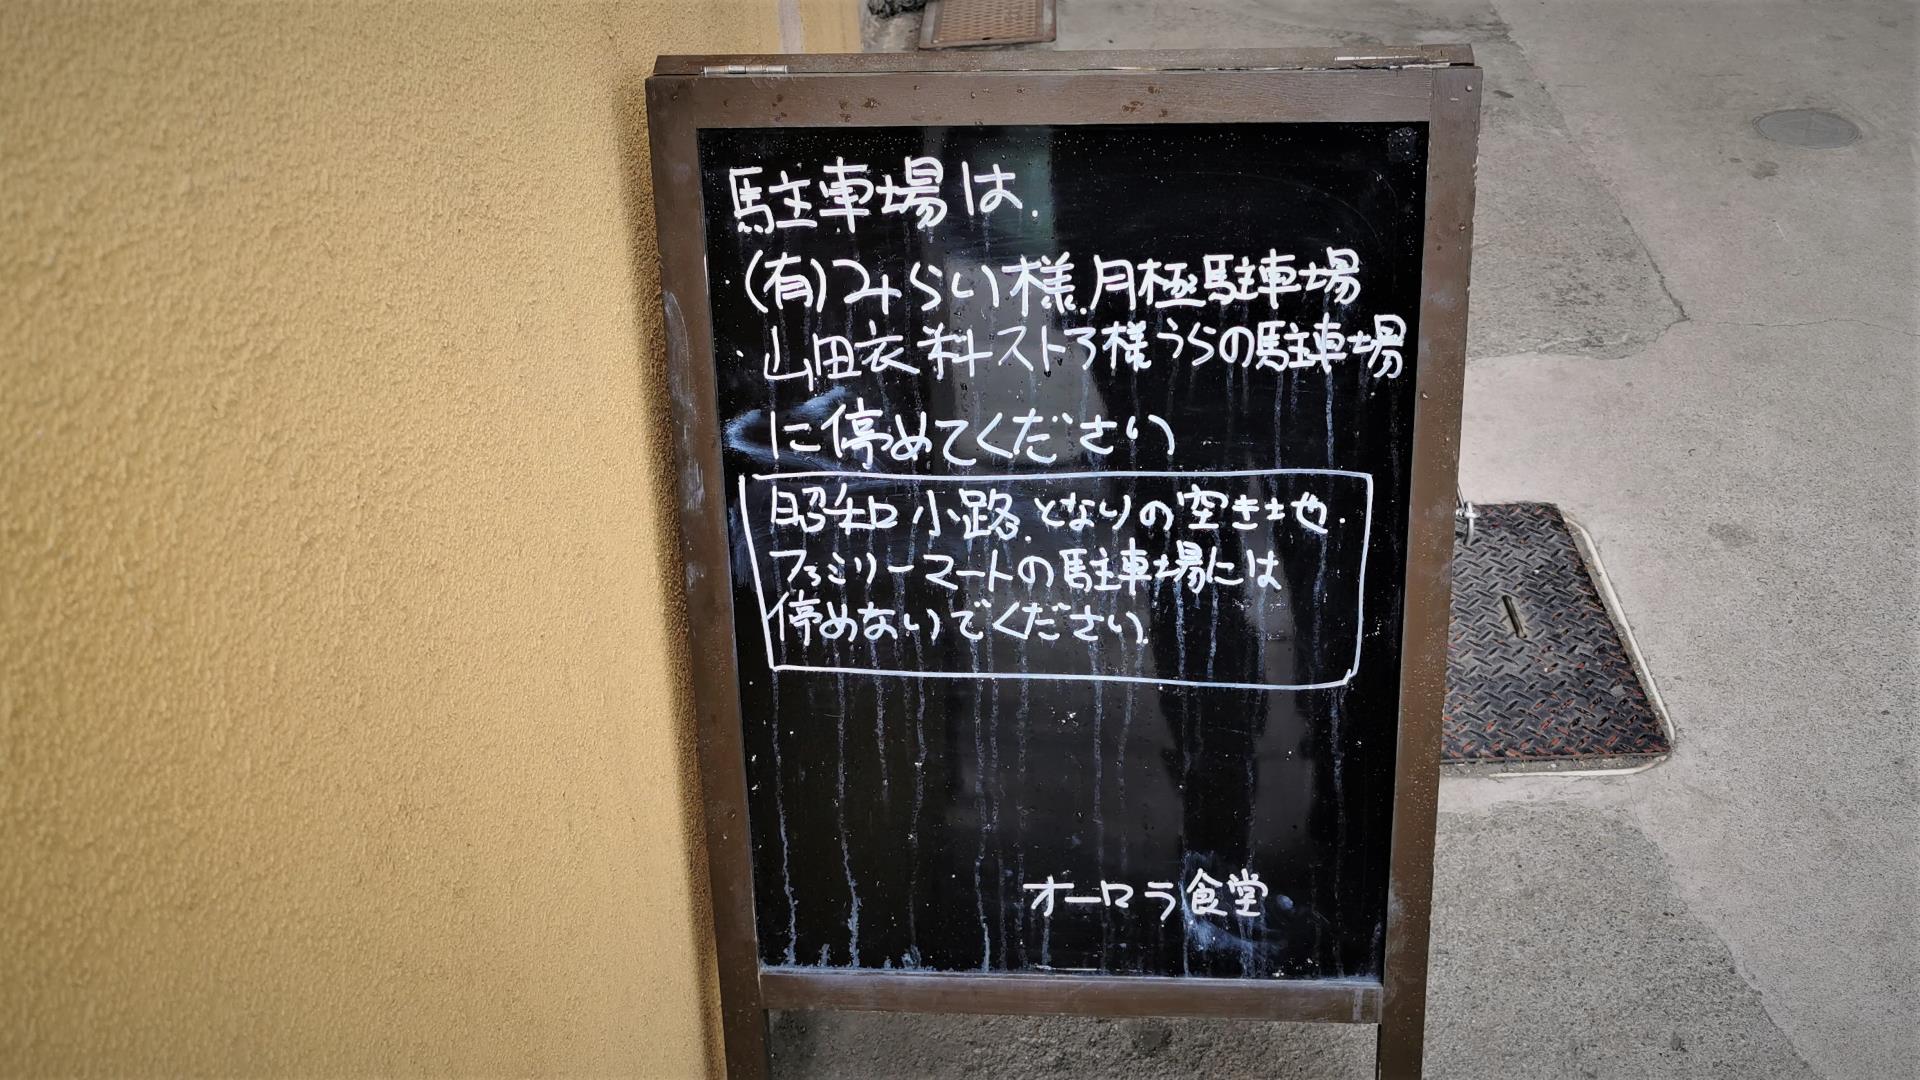 駐車場は、
(有)みらい様、月極駐車場
山田衣料ストア様うらの駐車場
に停めてください
昭和小路、となりの空き地、
ファミリーマートの駐車場には
停めないでください
オーロラ食堂